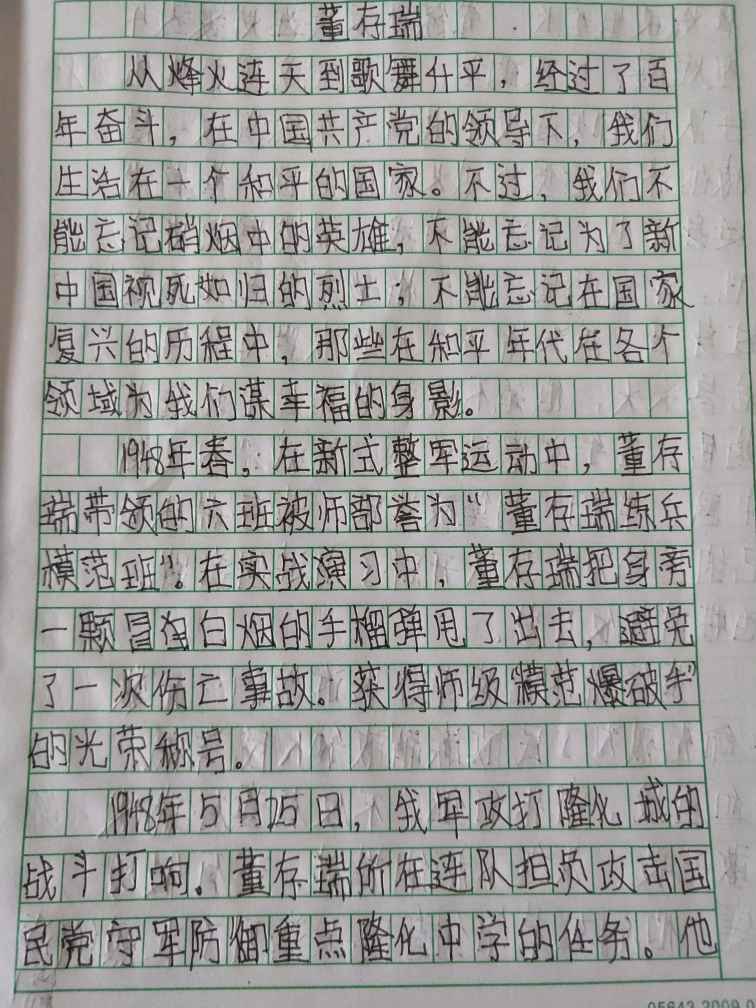 董存瑞
从烽火连天到歌舞升平，经过了百
年奋斗，在中国共产党的领导下，我们
生活在一个和平的国家。不过，我们不
能忘记硝烟中的英雄，不能忘记为了新
中国视死如归的烈士；不能忘记在国家
复兴的历程中，那些在和平年代在各个
领域为我们谋幸福的身影。
1948年春，在新式整军运动中，董存
瑞带领的六班被师部誉为“董存瑞练兵
模范班”。在实战演习中，董存瑞把身旁
一颗冒着白烟的手榴弹甩了出去，避免
了一次伤亡事故。获得师级“模范爆破手”
的光荣称号。
1948年5月25日，我军攻打隆化城的
战斗打响。董存瑞所在连队担负攻击国
民党守军防御重点隆化中学的任务。他
05643 2009.0